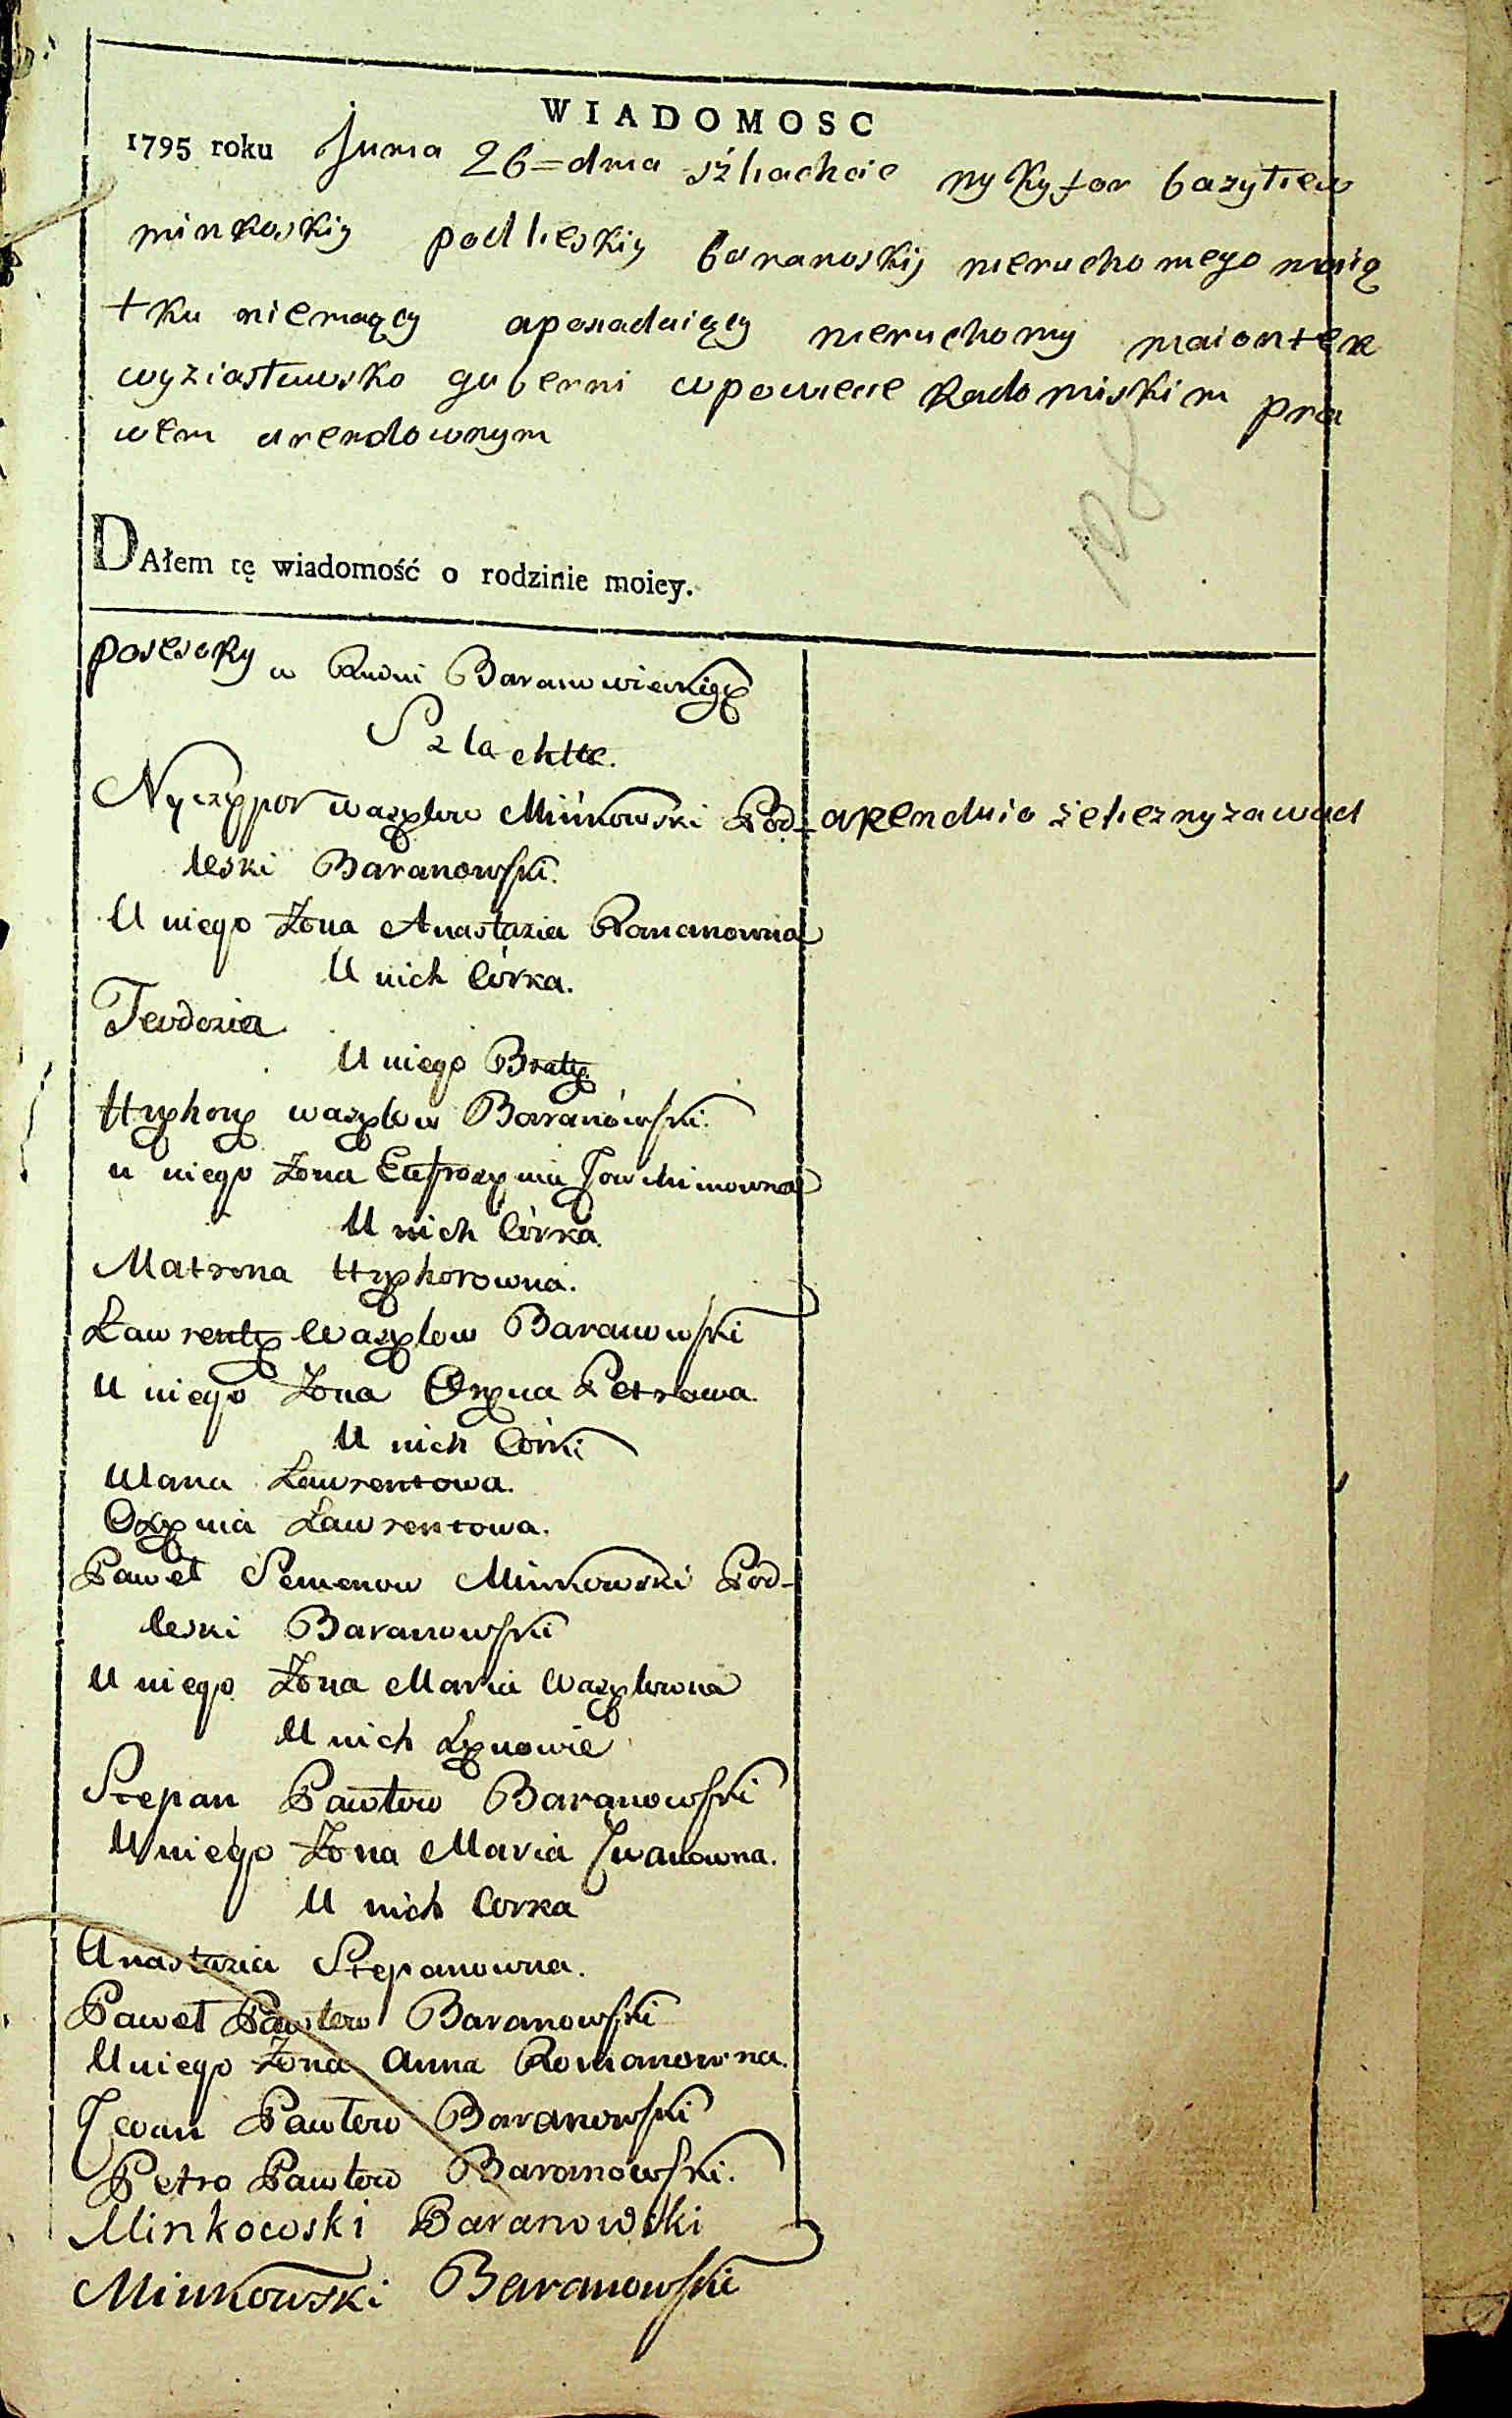 WIADOMOSC
1795 roku Juma 26=dma śzliachcie nykyfor bazyliew
minkoskiy podlieskiy baranoskiy nieruchomego maią
tku niemaący aposiaduiący nieruchomy maiontek
wyziasławsko guberni wpowiecie Radomiskim pra
wem arendownym
108
DAłem tę wiadomość o rodzinie moiey.
posesory w Rudni Baranowieckiey
Szlachta.
Nyczypor wasylow Minkowski Pod- arenduio żelieznyzawod
leski Baranowski.
U niego Żona Anastazia Romanowna
U nich Córka.
Teodozia
U niego Braty
Hryhory wasylow Baranowski.
u niego Żona Eufrozynia Jowchimowna
U nich Córka
Matrona Hryhorowna.
Ławrenty Wasylow Baranowski
U niego Żona Oryna Petrowa.
U nich Córki
Ulana Ławrentowa.
Oxynia Ławrentowa.
Paweł Semenow Minkowski Pod-
leski Baranowski
U niego Żona Maria Wasylowna
U nich Synowie
Stepan Pawłow Baranowski
U niego Żona Maria Jwanowna.
U nich Corka
Anastazia Stepanowna.
Paweł Pawłow Baranowski
U niego Żona Anna Romanowna.
Jwan Pawłow Baranowski
Petro Pawłow Baranowski.
Minkowski Baranowski
Minkowski Baranowski